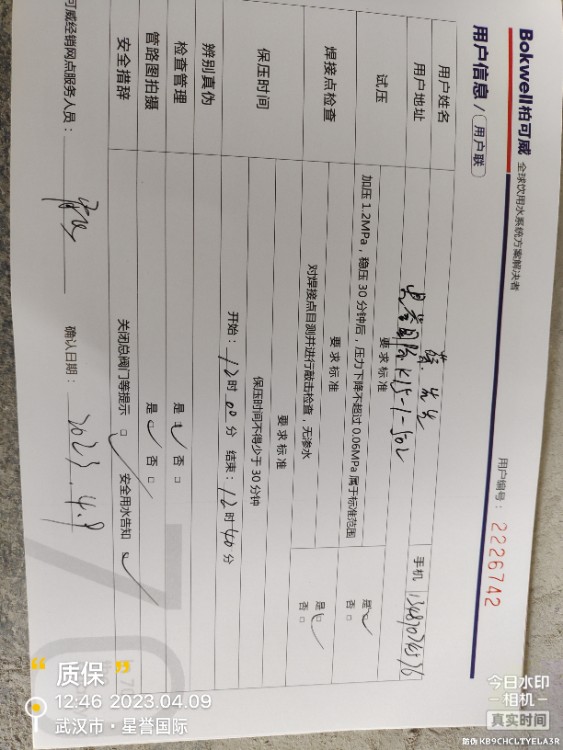 Bokwell柏可威 全球饮用水系统方案解决者
用户信息 / 用户联
用户编号： 2226742
用户姓名 先生 手机
用户地址 K15-1-502
试压 要求标准
加压 1.2MPa，稳压 30 分钟后，压力下降不超过 0.06MPa 属于标准范围 是 否
焊接点检查 要求标准
对焊接点目测并进行敲击检查，无渗水 是 否
保压时间 要求标准
保压时间不得少于 30 分钟
开始：12 时 00 分 结束：12 时 40 分
辨别真伪 是 否
检查管理 是 否
管路图拍摄
安全措辞 关闭总阀门等提示 安全用水告知
可威经销网点服务人员： 确认日期： 2023.4.9
质保
12:46 2023.04.09
武汉市·星誉国际
今日水印
相机
真实时间
防伪 KB9CHCLTYELA3R